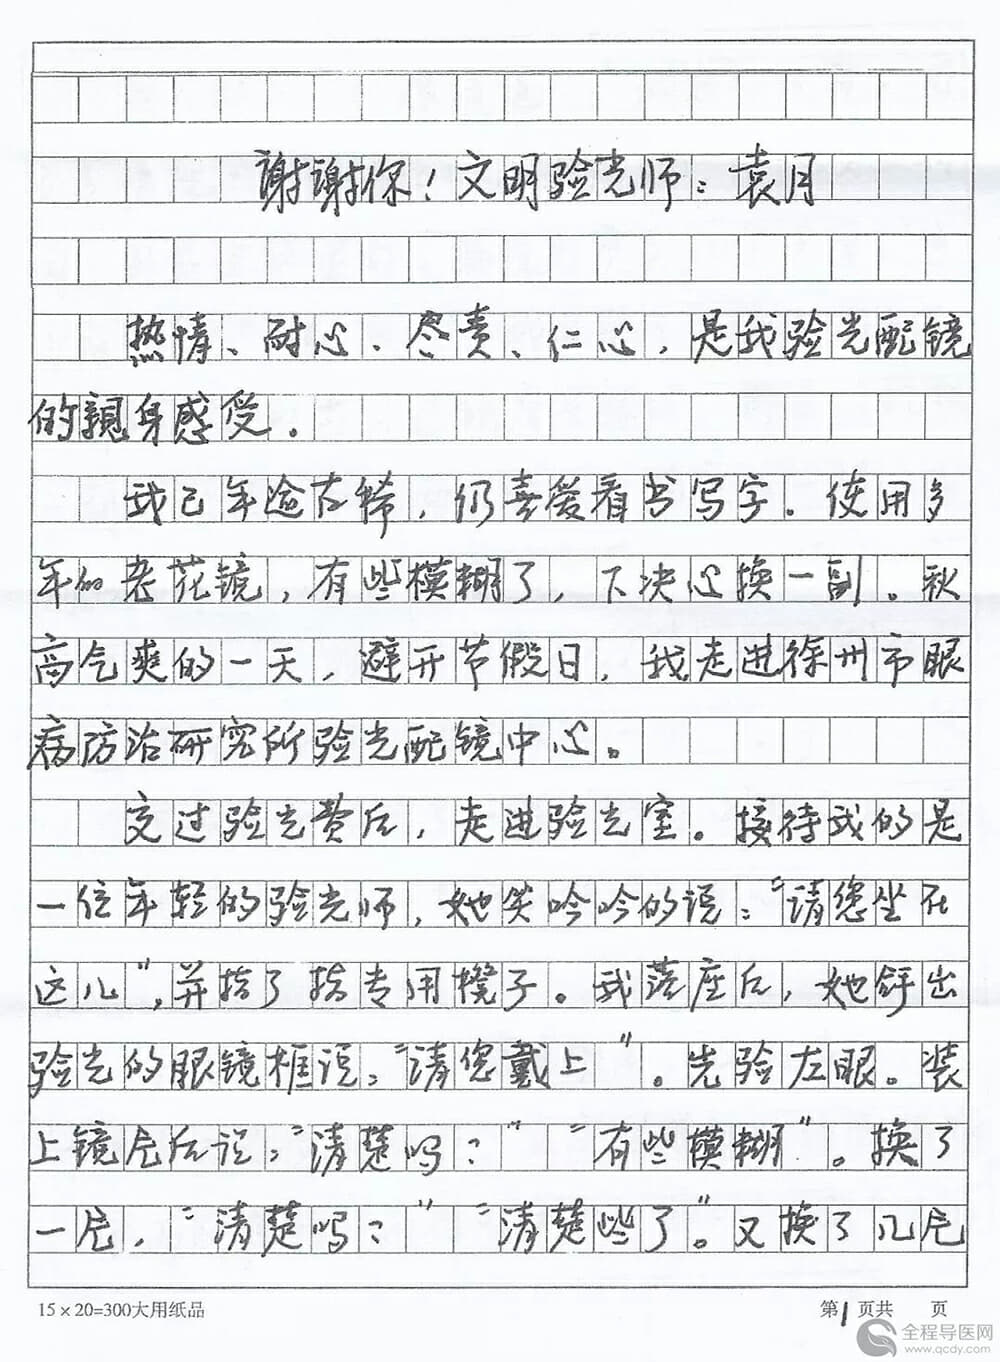 謝謝你！文明验光师：袁月
热情、耐心、尽责、仁心，是我验光配镜
的親身感受。
我已年逾古稀，仍喜爱看书写字。使用多
年的老花镜，有些模糊了，下决心换一副。秋
高气爽的一天，避开节假日，我走进徐州市眼
病防治研究所验光配镜中心。
交过验光费后，走进验光室。接待我的是
一位年轻的验光师，她笑吟吟的说：“请您坐在
这儿”，并指了指专用櫈子。我落座后，她舒出
验光的眼镜框说：“请您戴上”。先验左眼。装
上镜片后说：“清楚吗？”“有些模糊”。换了
一片，“清楚吗？”“清楚些了”。又换了几片
15×20=300大用纸品
第1页共 页
全程导医网
www.qcdy.com